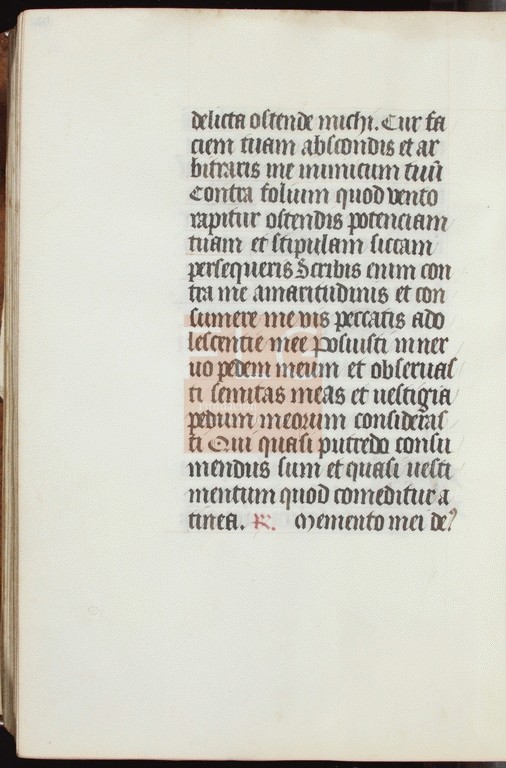 delicta ostende michi. Cur fa
ciem tuam abscondis et ar
bitraris me inimicum tuū
Contra folium quod vento
rapitur ostendis potenciam
tuam et stipulam siccam
persequeris Scribis enim con
tra me amaritudinis et con
sumere me vis peccatis ado
lescentie mee Posuisti in ner
uo pedem meum et obseruas
ti semitas meas et uestigia
pedum meorum consideras
ti Qui quasi putredo consu
mendus sum et quasi uesti
mentum quod comeditur a
tinea. R. Memento mei de᾽